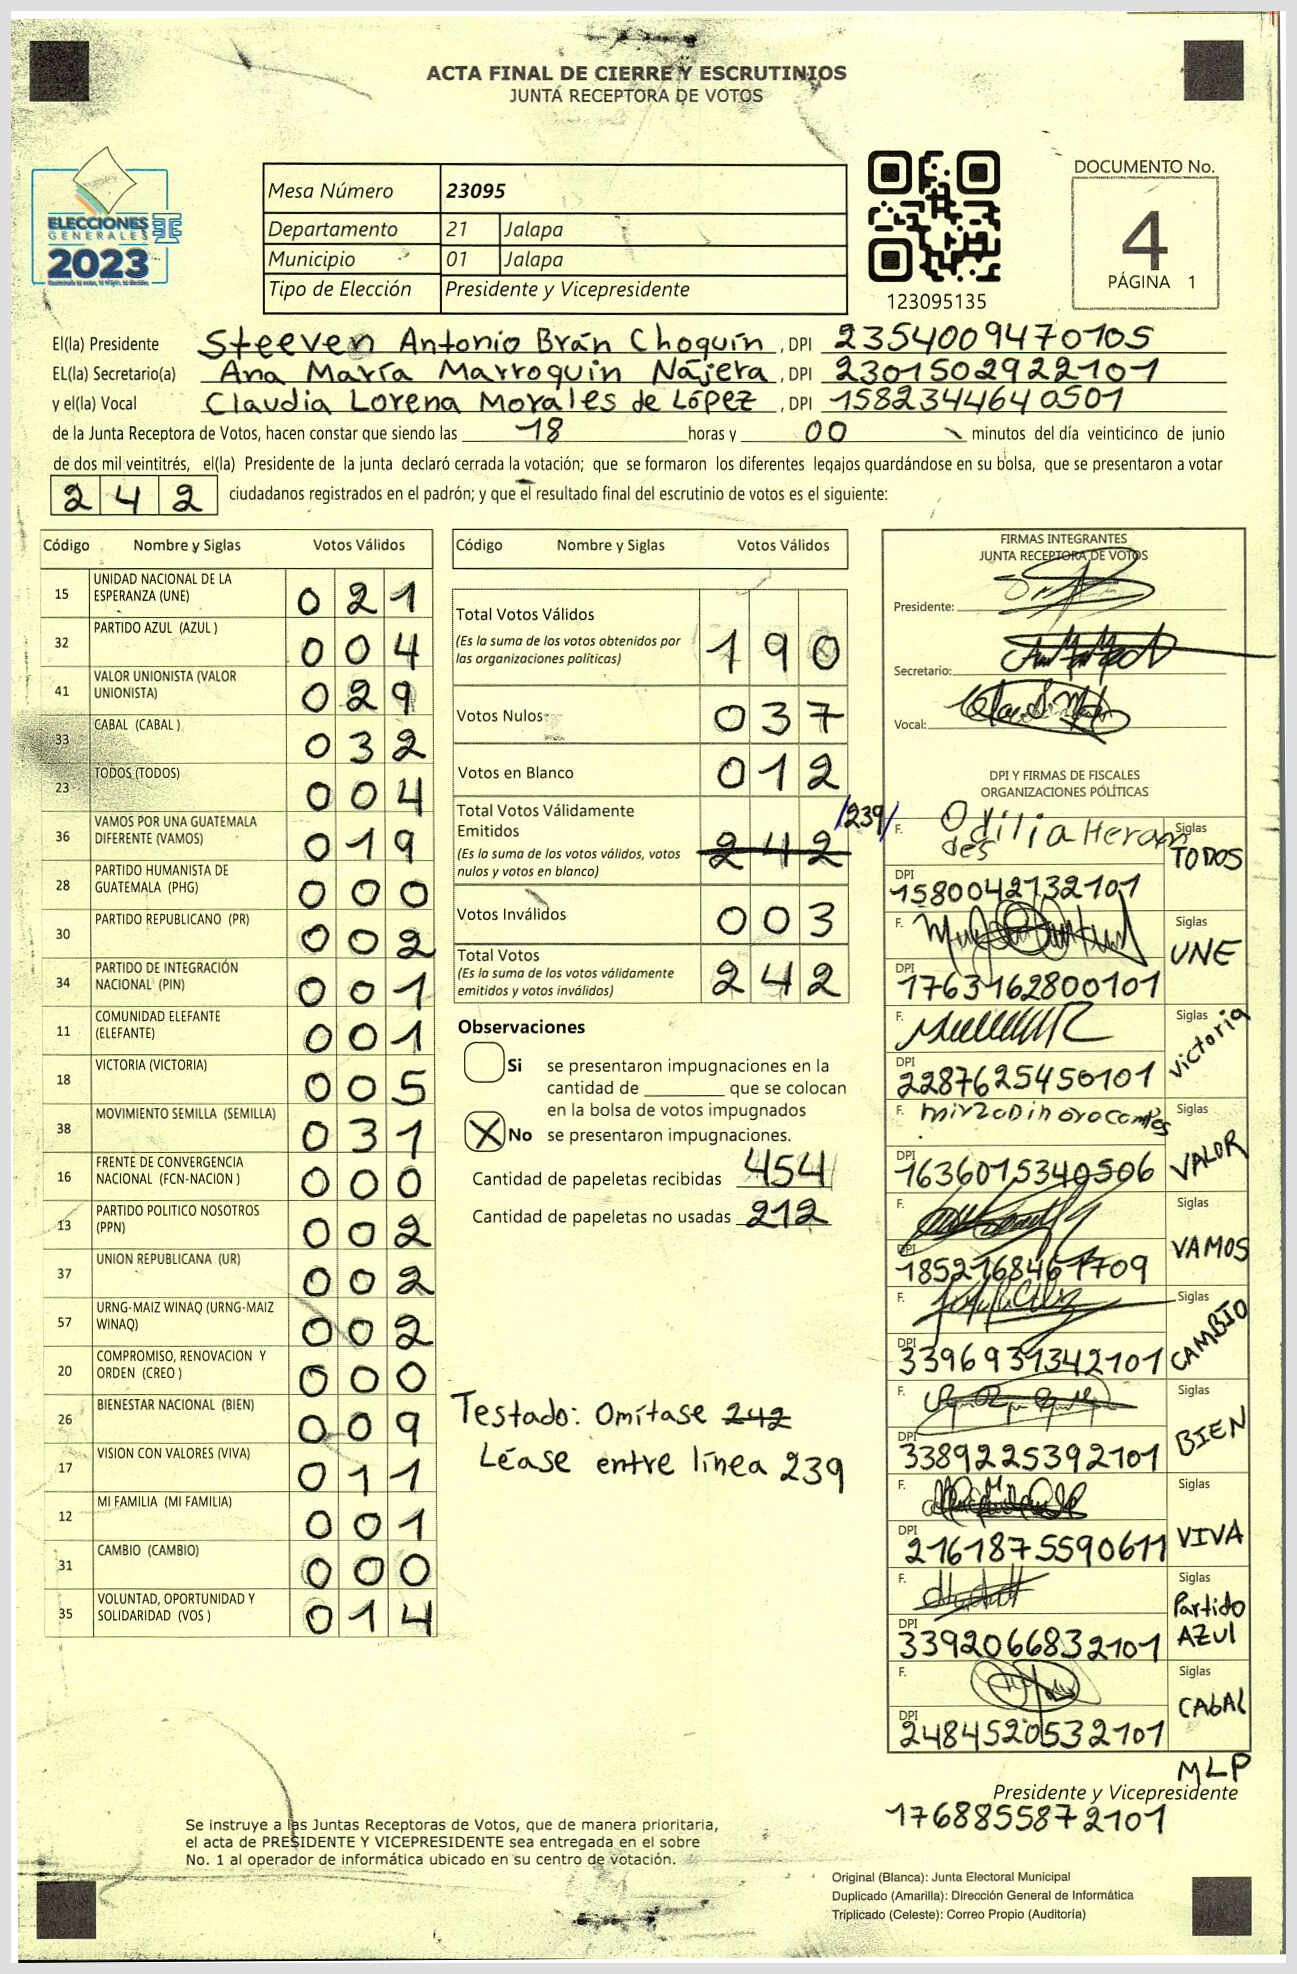 ACTA FINAL DE CIERRE Y ESCRUTINIOS
JUNTA RECEPTORA DE VOTOS
ELECCIONES
GENERALES
2023
Mesa Número 23095
Departamento 21 Jalapa
Municipio 01 Jalapa
Tipo de Elección Presidente y Vicepresidente
123095135
DOCUMENTO No.
4
PÁGINA 1
El(la) Presidente Steeven Antonio Brán Choquín , DPI 2354009470105
EL(la) Secretario(a) Ana María Marroquin Nájera , DPI 2301502922101
y el(la) Vocal Claudia Lorena Morales de López , DPI 1582344640501
de la Junta Receptora de Votos, hacen constar que siendo las 18 horas y 00 minutos del día veinticinco de junio
de dos mil veintitrés, el(la) Presidente de la junta declaró cerrada la votación; que se formaron los diferentes legajos guardándose en su bolsa, que se presentaron a votar
242 ciudadanos registrados en el padrón; y que el resultado final del escrutinio de votos es el siguiente:
Código Nombre y Siglas Votos Válidos
15 UNIDAD NACIONAL DE LA
ESPERANZA (UNE) 021
32 PARTIDO AZUL (AZUL ) 004
41 VALOR UNIONISTA (VALOR
UNIONISTA) 029
33 CABAL (CABAL ) 032
23 TODOS (TODOS) 004
36 VAMOS POR UNA GUATEMALA
DIFERENTE (VAMOS) 019
28 PARTIDO HUMANISTA DE
GUATEMALA (PHG) 000
30 PARTIDO REPUBLICANO (PR) 002
34 PARTIDO DE INTEGRACIÓN
NACIONAL (PIN) 001
11 COMUNIDAD ELEFANTE
(ELEFANTE) 001
18 VICTORIA (VICTORIA) 005
38 MOVIMIENTO SEMILLA (SEMILLA) 031
16 FRENTE DE CONVERGENCIA
NACIONAL (FCN-NACION ) 000
13 PARTIDO POLITICO NOSOTROS
(PPN) 002
37 UNION REPUBLICANA (UR) 002
57 URNG-MAIZ WINAQ (URNG-MAIZ
WINAQ) 002
20 COMPROMISO, RENOVACION Y
ORDEN (CREO ) 000
26 BIENESTAR NACIONAL (BIEN) 009
17 VISION CON VALORES (VIVA) 011
12 MI FAMILIA (MI FAMILIA) 001
31 CAMBIO (CAMBIO) 000
35 VOLUNTAD, OPORTUNIDAD Y
SOLIDARIDAD (VOS ) 014
Código Nombre y Siglas Votos Válidos
Total Votos Válidos
(Es la suma de los votos obtenidos por
las organizaciones políticas) 190
Votos Nulos 037
Votos en Blanco 012
Total Votos Válidamente
Emitidos /239/
(Es la suma de los votos válidos, votos
nulos y votos en blanco) 242
Votos Inválidos 003
Total Votos
(Es la suma de los votos válidamente
emitidos y votos inválidos) 242
Observaciones
Si se presentaron impugnaciones en la
cantidad de ________ que se colocan
en la bolsa de votos impugnados
X No se presentaron impugnaciones.
Cantidad de papeletas recibidas 454
Cantidad de papeletas no usadas 212
Testado: Omítase 242
Léase entre línea 239
FIRMAS INTEGRANTES
JUNTA RECEPTORA DE VOTOS
Presidente:
Secretario:
Vocal:
DPI Y FIRMAS DE FISCALES
ORGANIZACIONES PÓLITICAS
F. Odilia Hernan Siglas
des TODOS
DPI
1580042132101
F. Siglas
UNE
DPI
1763162800101
F. Siglas
Victoria
DPI
2287625450101
F. Siglas
VALOR
DPI
1636015340506
F. Siglas
VAMOS
DPI
1852168461709
F. Siglas
CAMBIO
DPI
3396931342101
F. Siglas
BIEN
DPI
3389225392101
F. Siglas
VIVA
DPI
2161875590611
F. Siglas
Partido
AZUl
DPI
3392066832101
F. Siglas
CABAL
DPI
2484520532101
MLP
Presidente y Vicepresidente
1768855872101
Se instruye a las Juntas Receptoras de Votos, que de manera prioritaria,
el acta de PRESIDENTE Y VICEPRESIDENTE sea entregada en el sobre
No. 1 al operador de informática ubicado en su centro de votación.
Original (Blanca): Junta Electoral Municipal
Duplicado (Amarilla): Dirección General de Informática
Triplicado (Celeste): Correo Propio (Auditoría)